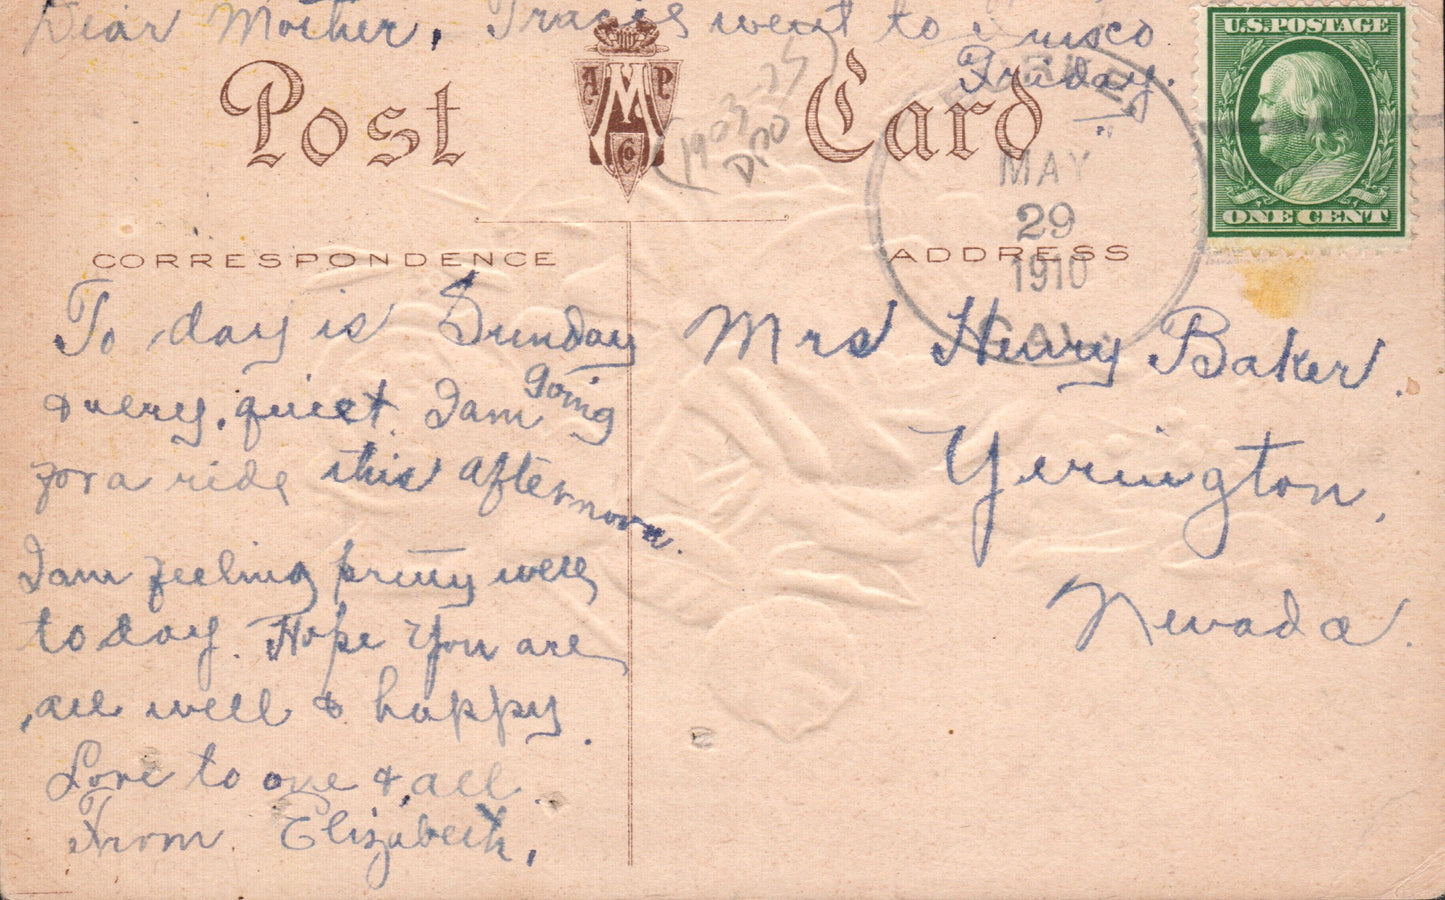 Dear Mother, Traces went to Frisco
Friday.
Post Card
A M P Co
(1903-25)
DPO
U.S. POSTAGE
ONE CENT
MAY
29
1910
CAL.
CORRESPONDENCE
ADDRESS
To day is Sunday
& very, quiet. I am going
for a ride this afternoon.
I am feeling pretty well
to day. Hope you are
all well & happy.
Love to one & all.
From Elizabeth,
Mrs Henry Baker.
Yerington,
Nevada.